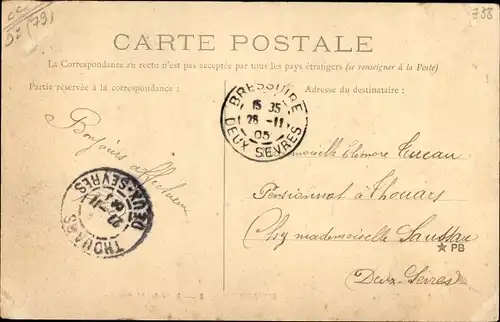 CC
(79)
738
CARTE POSTALE
La Correspondance au recto n'est pas acceptée par tous les pays étrangers (se renseigner à la Poste)
Partie réservée à la correspondance :
Adresse du destinataire :
BRESSUIRE
15 35
28 -11
05
DEUX SEVRES
Bonjours affectueux
THOUARS
DEUX-SEVRES
Mademoiselle Eléonore
Pensionnat à Thouars
Chez mademoiselle
★ PB
(Deux-Sèvres)